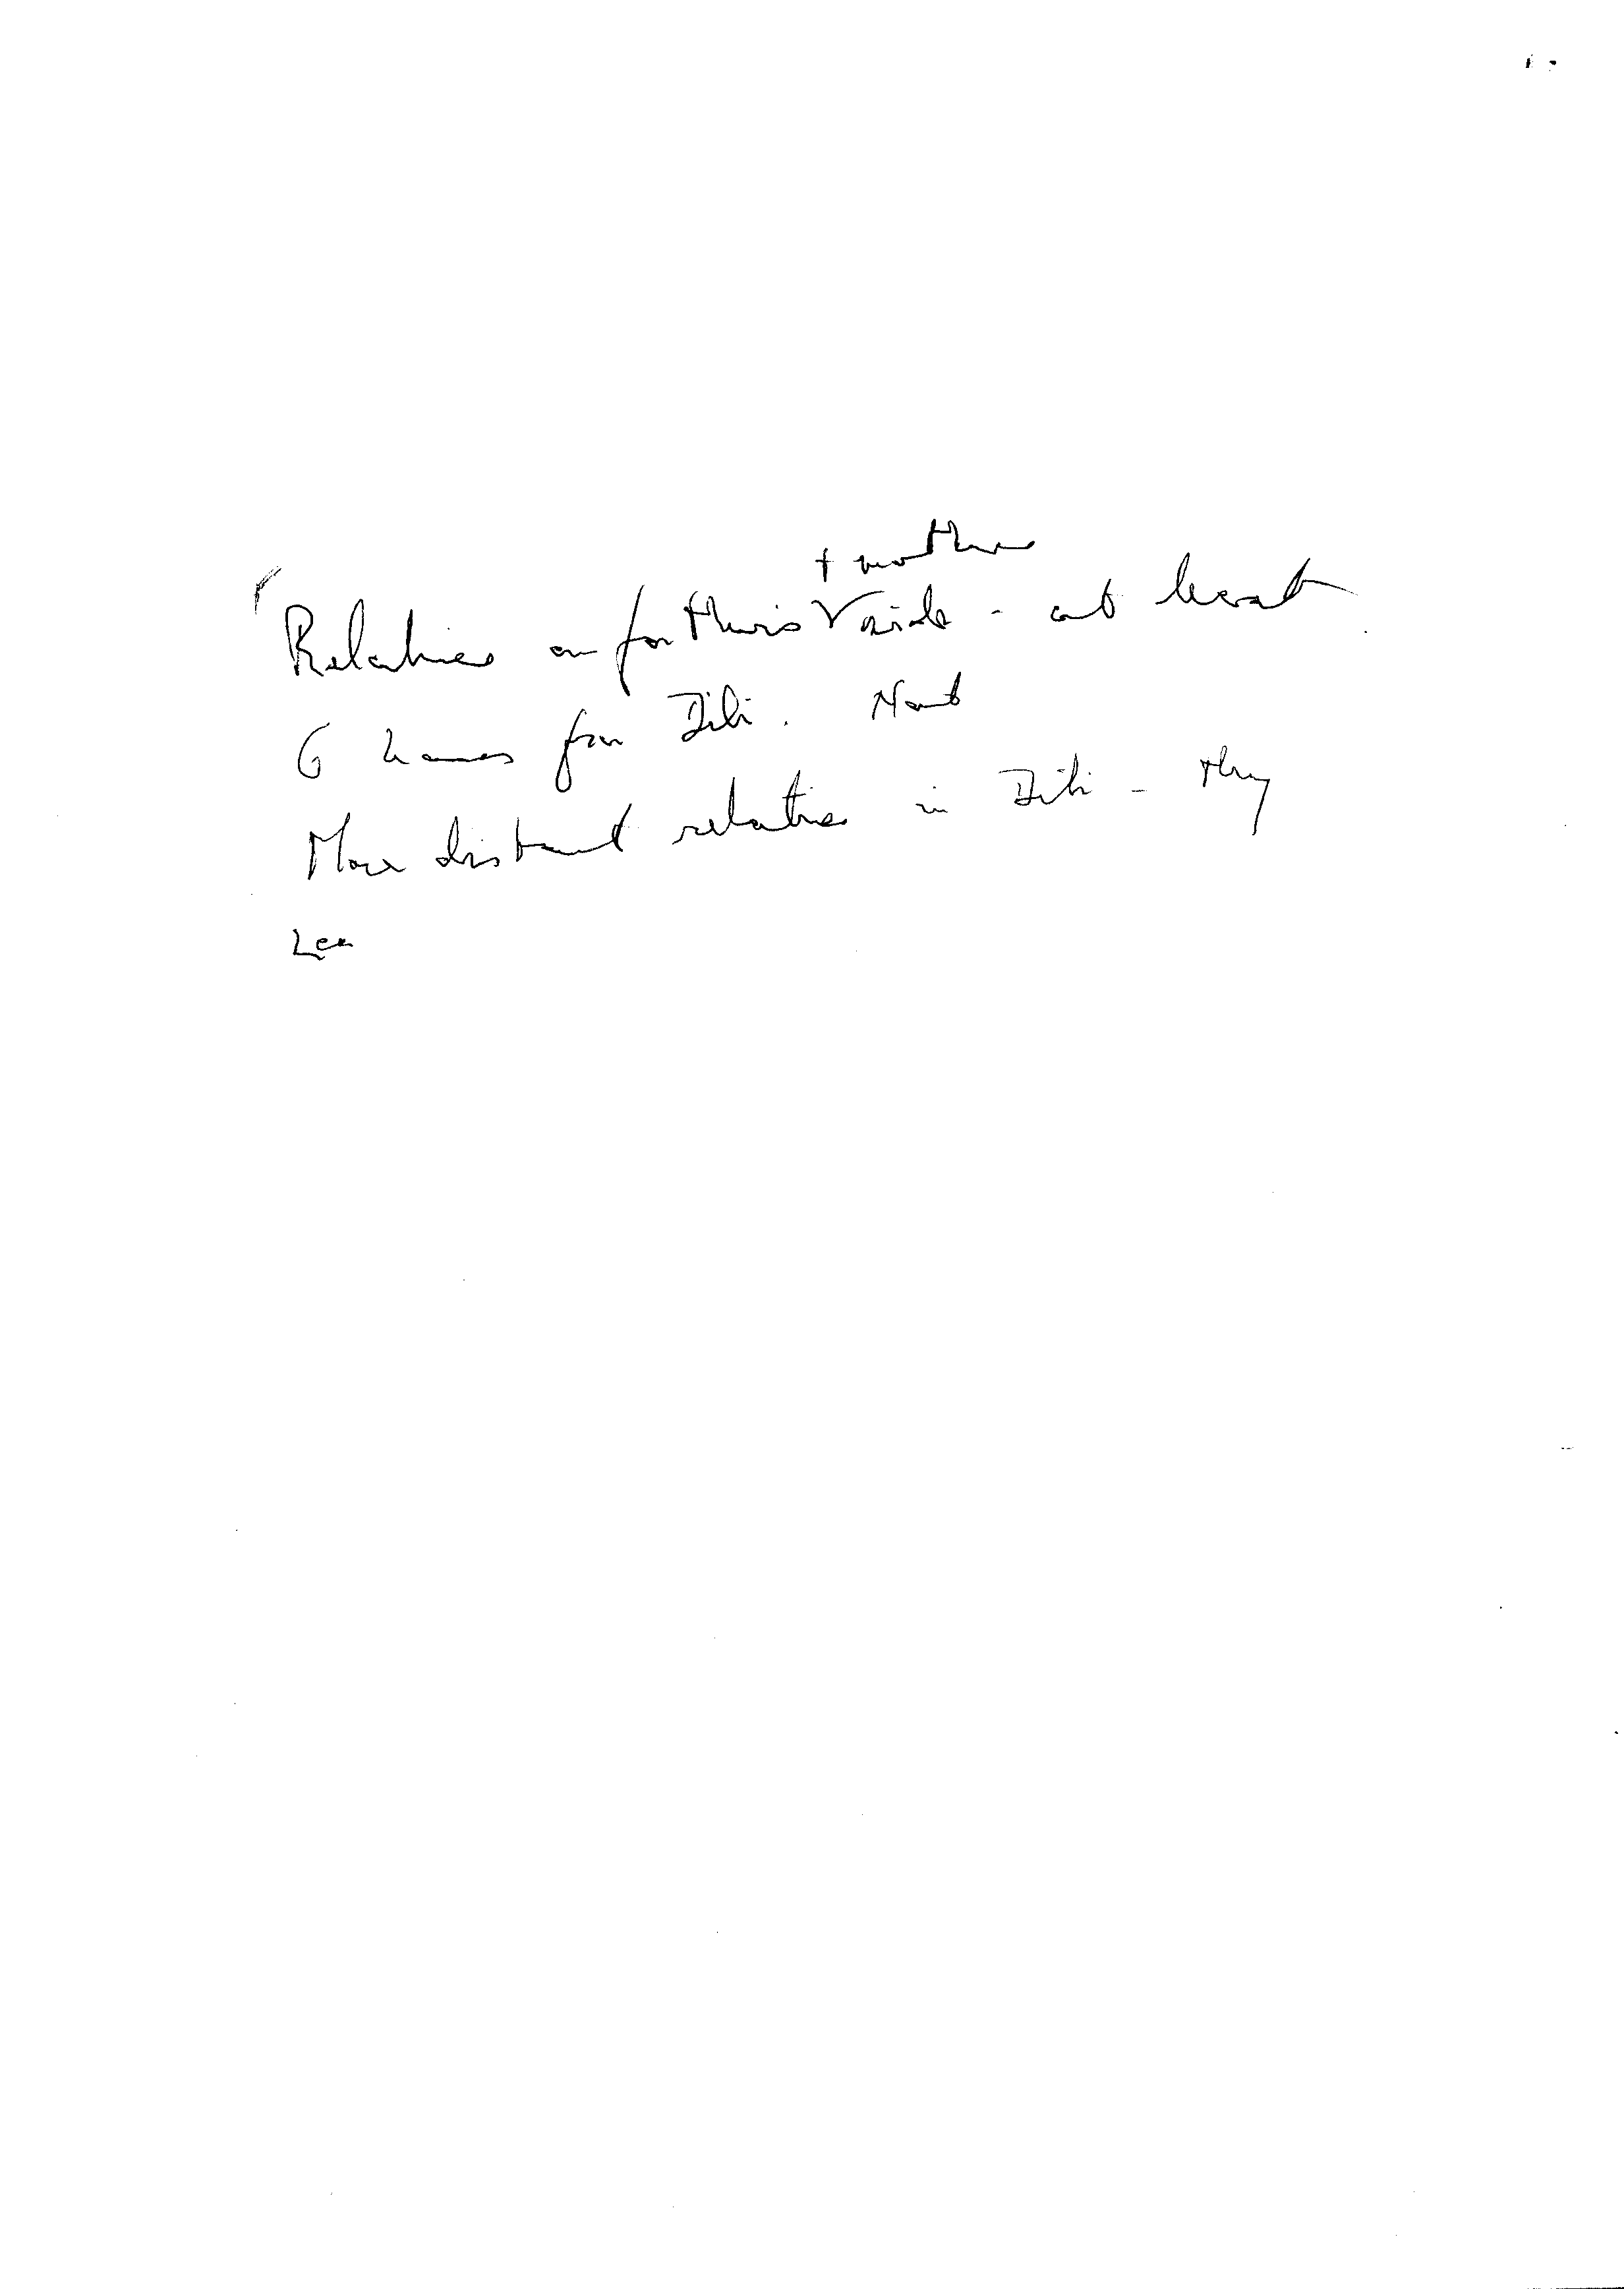 + mother
Relatives on father's side - at least
6 hours from Dili.
More distant relatives in Dili - they